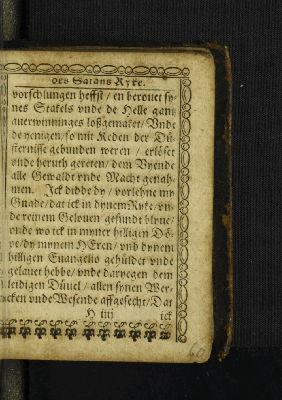 des Satans Ryke.
vorschlungen heffst / en berouet sy-
nes Stakels vnde de Helle gantz
auerwinninges loßgemaket / Vnde
de yenigen / so mit Keden der Dü-
sternisse gebunden weren / erlöset
vnde heruth gereten / dem Vyende
alle Gewaldt vnde Macht genah-
men. Jck bidde dy / vorlehne my
Gnade / dat ick in dynem Ryke / vn-
de reinem Gelouen gesundt blyue /
vnde wo ick in myner hilligen Dö-
pe / dy mynem HEren / vnd dynem
hilligen Euangelio gehülder vnde
gelauet hebbe / vnde daryegen dem
leidigen Düuel / allen synen Wer-
cken vnde Wesende affgesecht / Dat
H iiij ick
60